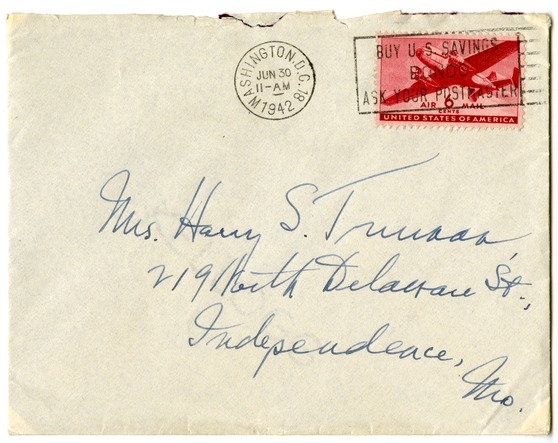 WASHINGTON, D.C. 18
JUN 30
11-AM
1942
BUY U.S. SAVINGS
BONDS
ASK YOUR POSTMASTER
AIR 6 MAIL
CENTS
UNITED STATES OF AMERICA
Mrs. Harry S. Truman
219 North Delaware St.,
Independence,
Mo.